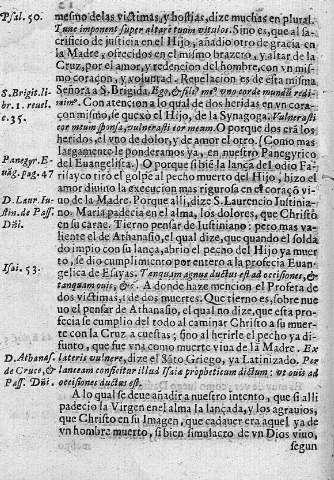 Psal. 50.
mesmo delas victimas, y hostias, dize muchas en plural.
Tunc imponent super altare tuum vitulos. Sino es, que al sa-
crificio de justicia en el Hijo, añadio otro de gracia en
la Madre, ofrecidos en el mismo brazero, y altar de la
Cruz, por el amor, y redencion del hombre, con vn mis-
mo coraçon, y voluntad. Reuelacion es de esta misma
S. Brigit. li-
br. 1. reuel.
c. 35.
Señora à S. Brigida. Ego, & filius meus vno corde mundũ redi-
mimus. Con atencion a lo qual de dos heridas en vn cora-
çon mismo, se quexò el Hijo, de la Synagoga. Vulnerasti
cor meum sponsa, vulnerasti cor meum. O porque dos erã los
heridos, el vno de dolor, y de amor el otro. (Como mas
largamente le ponderamos ya, en nuestro Panegyrico
Panegyr. E-
uãg. pag. 47
del Euangelista.) O porque si biē la lança del Iodio Fa-
risayco tirò el golpe al pecho muerto del Hijo, hizo el
amor diuino la execucion mas rigurosa en el coraçõ vi-
D. Laur. Iu-
stin. de Pass.
Dñi.
uo de la Madre. Porque alli, dize S. Laurencio Iustinia-
no. Maria padecia en el alma, los dolores, que Christo
en su carne. Tierno pensar de Iustiniano: pero mas va-
liente el de Athanasio, el qual dize, que quando el solda
do impio con su lança, abrio el pecho del Hijo ya muer
to, se dio cumplimiento por entero a la profecia Euan-
Isai. 53.
gelica de Esayas. Tanquam agnus ductus est ad occisionem, &
tanquam ouis, &c. A donde haze mencion el Profeta de
dos victimas, i de dos muertes. Que tierno es, sobre nue
uo el pensar de Athanasio, el qual no dize, que esta pro-
fecia se cumplio del todo al caminar Christo a su muer-
te con la Cruz a cuestas; sino al herirle el pecho ya di-
funto, que fue viua como muerte viua de la Madre. Ex
D. Athanas.
de Cruce, &
Pass. Dñi.
lateris vulnere, dize el Sãto Griego, ya Latinizado. Per
lanceam conficitur illud Isaiæ propheticum dictum; vt ouis ad
occisiones ductus est.
A lo qual se deue añadir a nuestro intento, que si alli
padecio la Virgen en el alma la lançada, y los agrauios,
que Christo en su Imagen, que cadauer era aquel ya de
vn hombre muerto, si bien simulacro de vn Dios viuo,
segun